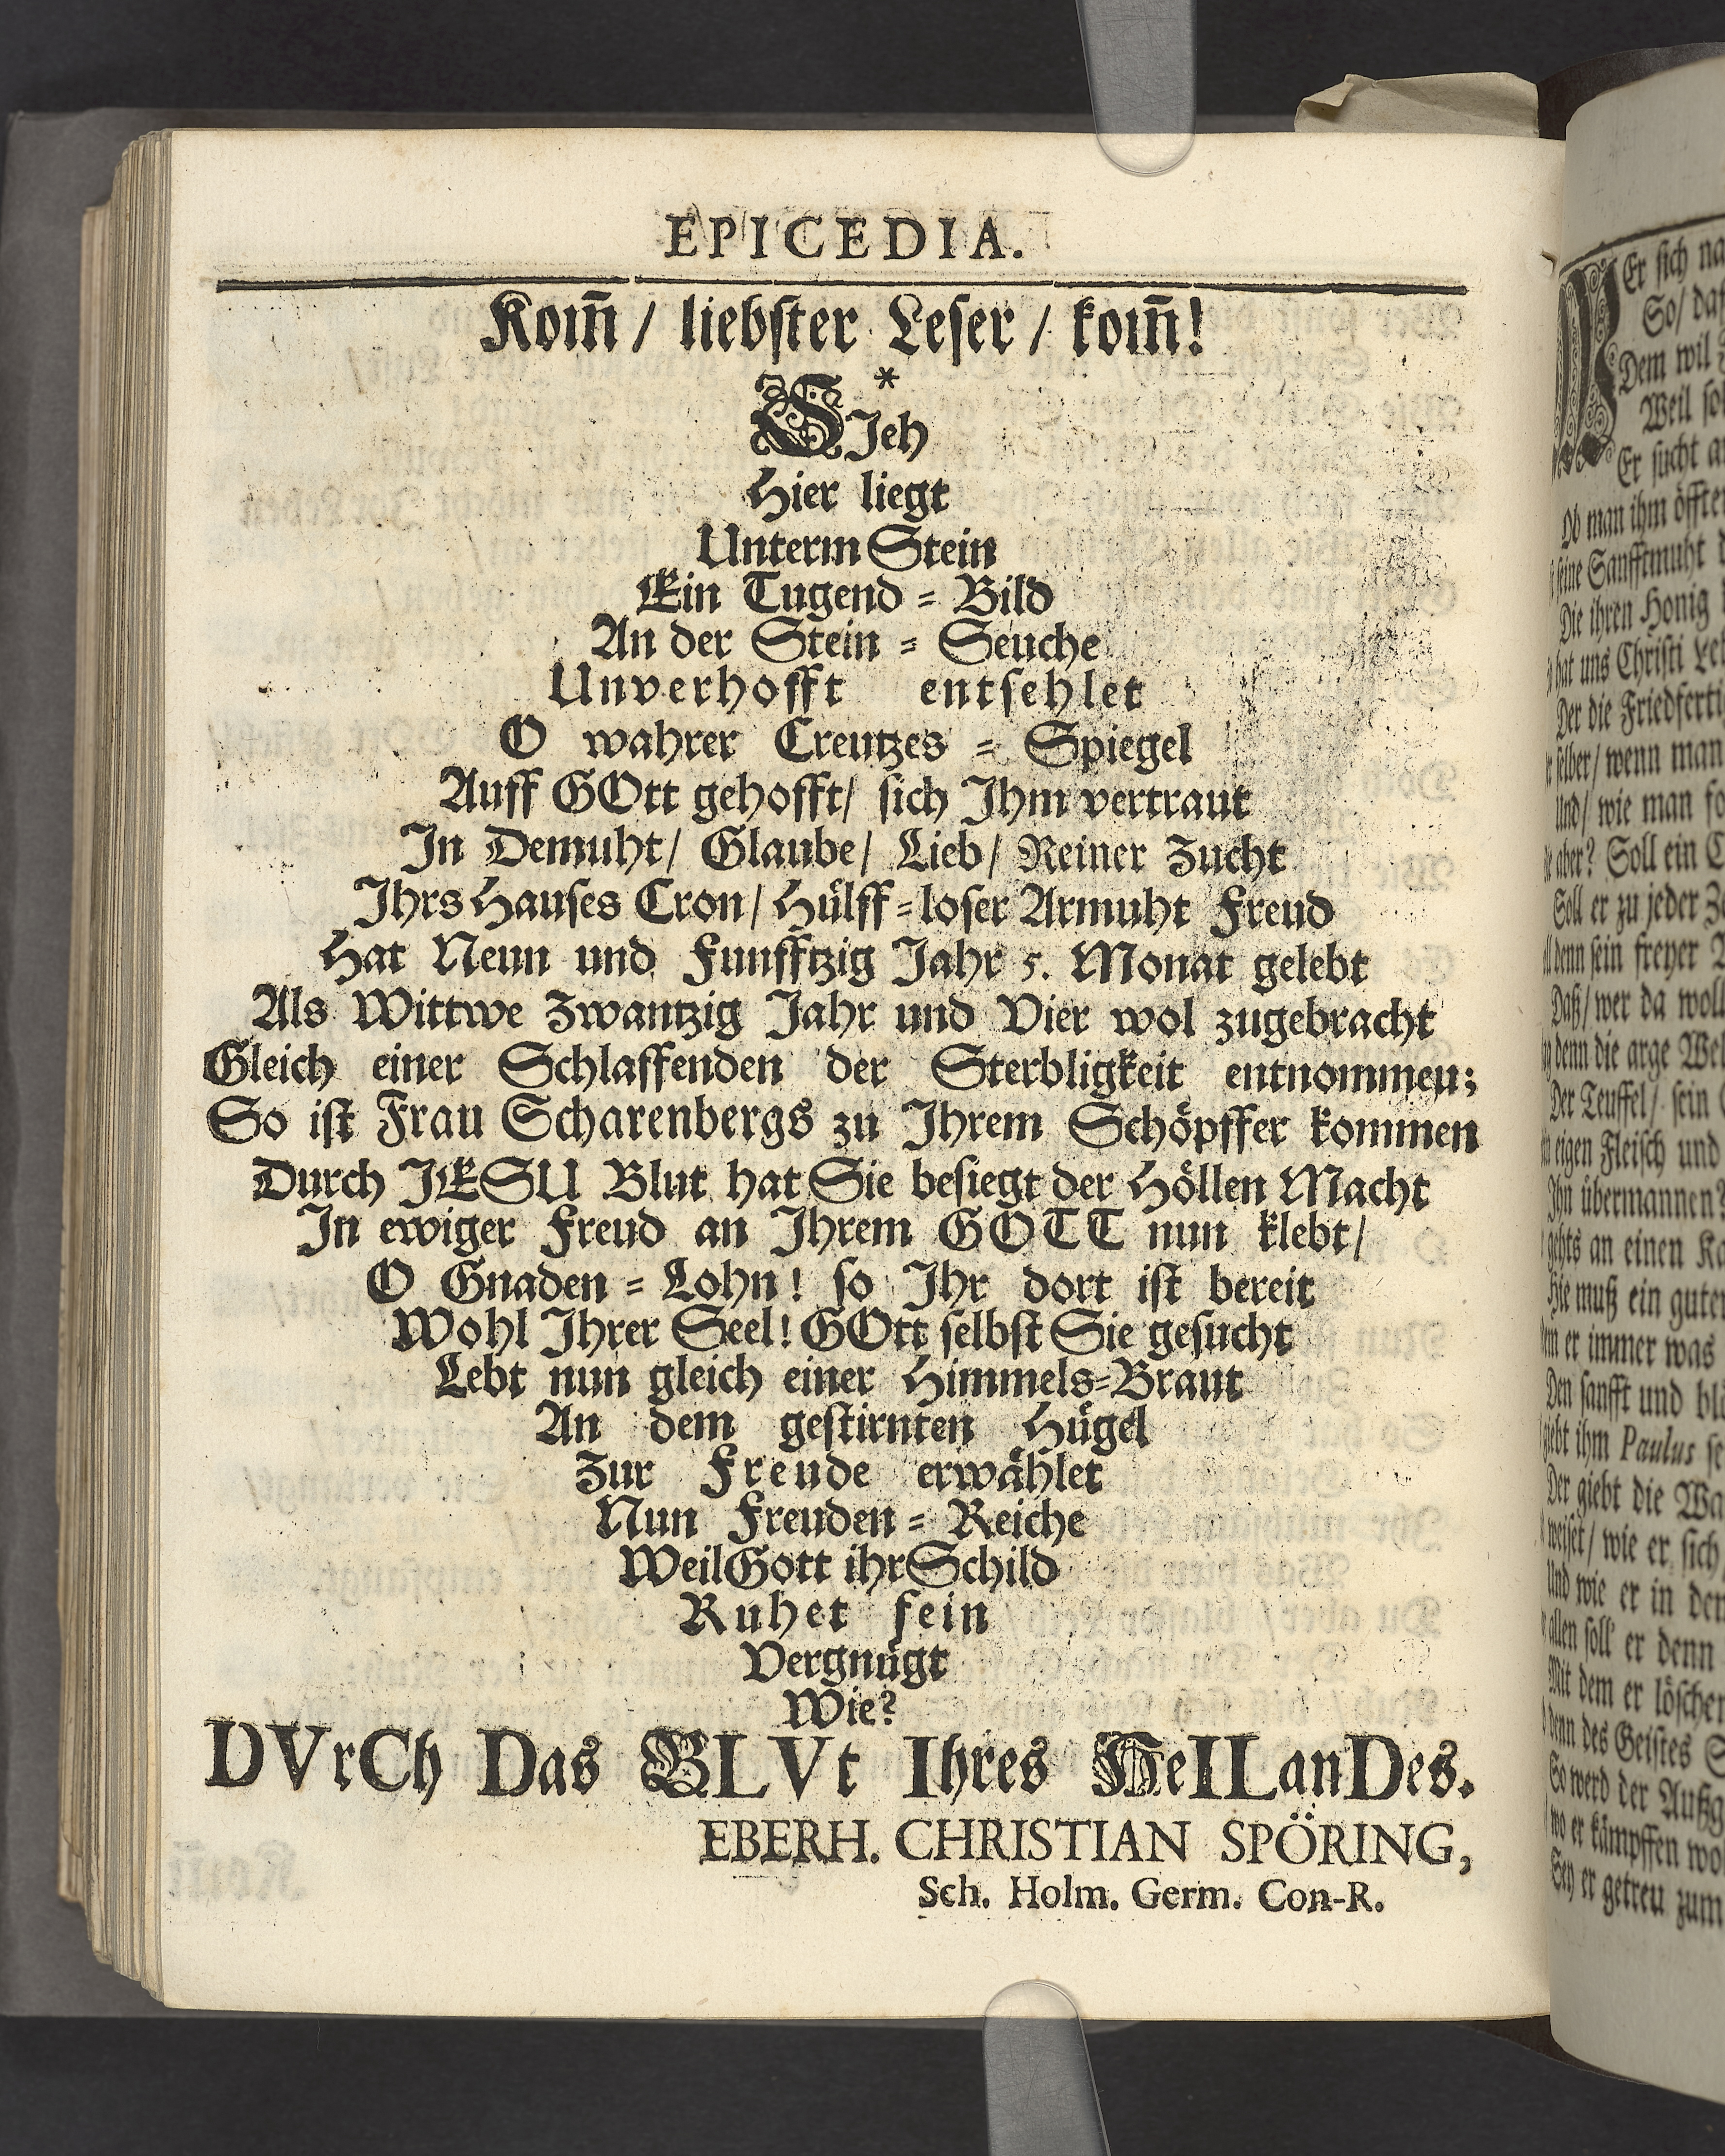 EPICEDIA.
Kom̃ / liebster Leser / kom̃!
*
SIeh
Hier liegt
Unterm Stein
Ein Tugend = Bild
An der Stein = Seuche
Unverhofft entsehlet
O wahrer Creutzes = Spiegel
Auff GOtt gehofft/ sich Ihm vertraut
In Demuht/ Glaube/ Lieb/ Reiner Zucht
Ihrs Hauses Cron/ Hülff=loser Armuht Freud
Hat Neun und Funfftzig Jahr 5. Monat gelebt
Als Wittwe Zwantzig Jahr und Vier wol zugebracht
Gleich einer Schlaffenden der Sterbligkeit entnommen;
So ist Frau Scharenbergs zu Ihrem Schöpffer kommen
Durch JESU Blut hat Sie besiegt der Höllen Macht
In ewiger Freud an Ihrem GOTT nun klebt/
O Gnaden = Lohn! so Ihr dort ist bereit
Wohl Ihrer Seel! GOtt selbst Sie gesucht
Lebt nun gleich einer Himmels=Braut
An dem gestirnten Hügel
Zur Freude erwählet
Nun Freuden = Reiche
Weil Gott ihr Schild
Ruhet fein
Vergnügt
Wie?
DVrCh Das BLVt Ihres HeILanDes.
EBERH. CHRISTIAN SPÖRING,
Sch. Holm. Germ. Con-R.
Er sich
So/
Dem wil
Weil
Er sucht
Ob man ihm
seine Sanfftmuht
Die ihren Honig
hat uns Christi
Der die
selber/ wenn man
Und/ wie man
aber? Soll ein
Soll er zu jeder
denn sein freyer
Daß/ wer da
denn die arge
Der Teuffel/ sein
eigen Fleisch und
Ihn übermannen?
gehts an einen
Hie muß ein guter
er immer was
Den sanfft und
giebt ihm Paulus
Der giebt die
weiset/ wie er sich
Und wie er in
allen soll er denn
Mit dem er
denn des Geistes
So werd der
wo er kämpffen
Sey er getreu zum